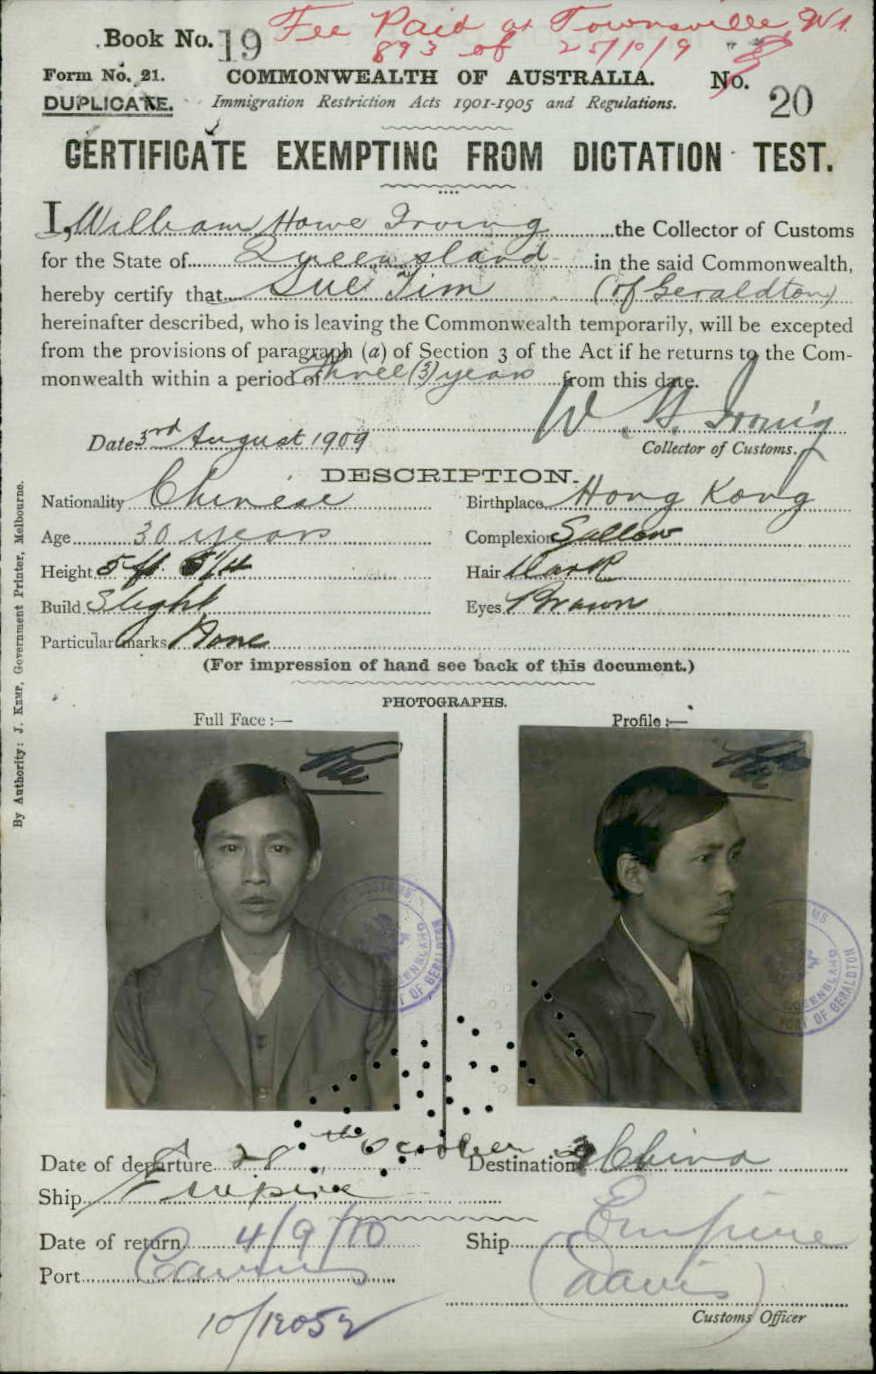 Book No. 19
Fee Paid at Townsville
893 of 25/10/9
Form No. 21.
COMMONWEALTH OF AUSTRALIA.
No. 20
DUPLICATE.
Immigration Restriction Acts 1901-1905 and Regulations.
CERTIFICATE EXEMPTING FROM DICTATION TEST.
I, William Howe Irving the Collector of Customs
for the State of Queensland in the said Commonwealth,
hereby certify that Sue Tim (of Geraldton)
hereinafter described, who is leaving the Commonwealth temporarily, will be excepted
from the provisions of paragraph (a) of Section 3 of the Act if he returns to the Com-
monwealth within a period of three (3) years from this date.
W. H. Irving
Date 3rd August 1909
Collector of Customs.
DESCRIPTION.
Nationality Chinese
Birthplace Hong Kong
Age 30 years
Complexion Sallow
Height 5 ft 5 1/4
Hair Dark
Build Slight
Eyes Brown
Particular marks None
(For impression of hand see back of this document.)
PHOTOGRAPHS.
Full Face :—
Profile :—
QUEENSLAND
PORT OF GERALDTON
QUEENSLAND
PORT OF GERALDTON
Date of departure 28th October
Destination China
Ship Empire
Date of return 4/9/10
Ship Empire
Port Cairns
(Davis)
Customs Officer
10/12052
By Authority: J. Kemp, Government Printer, Melbourne.